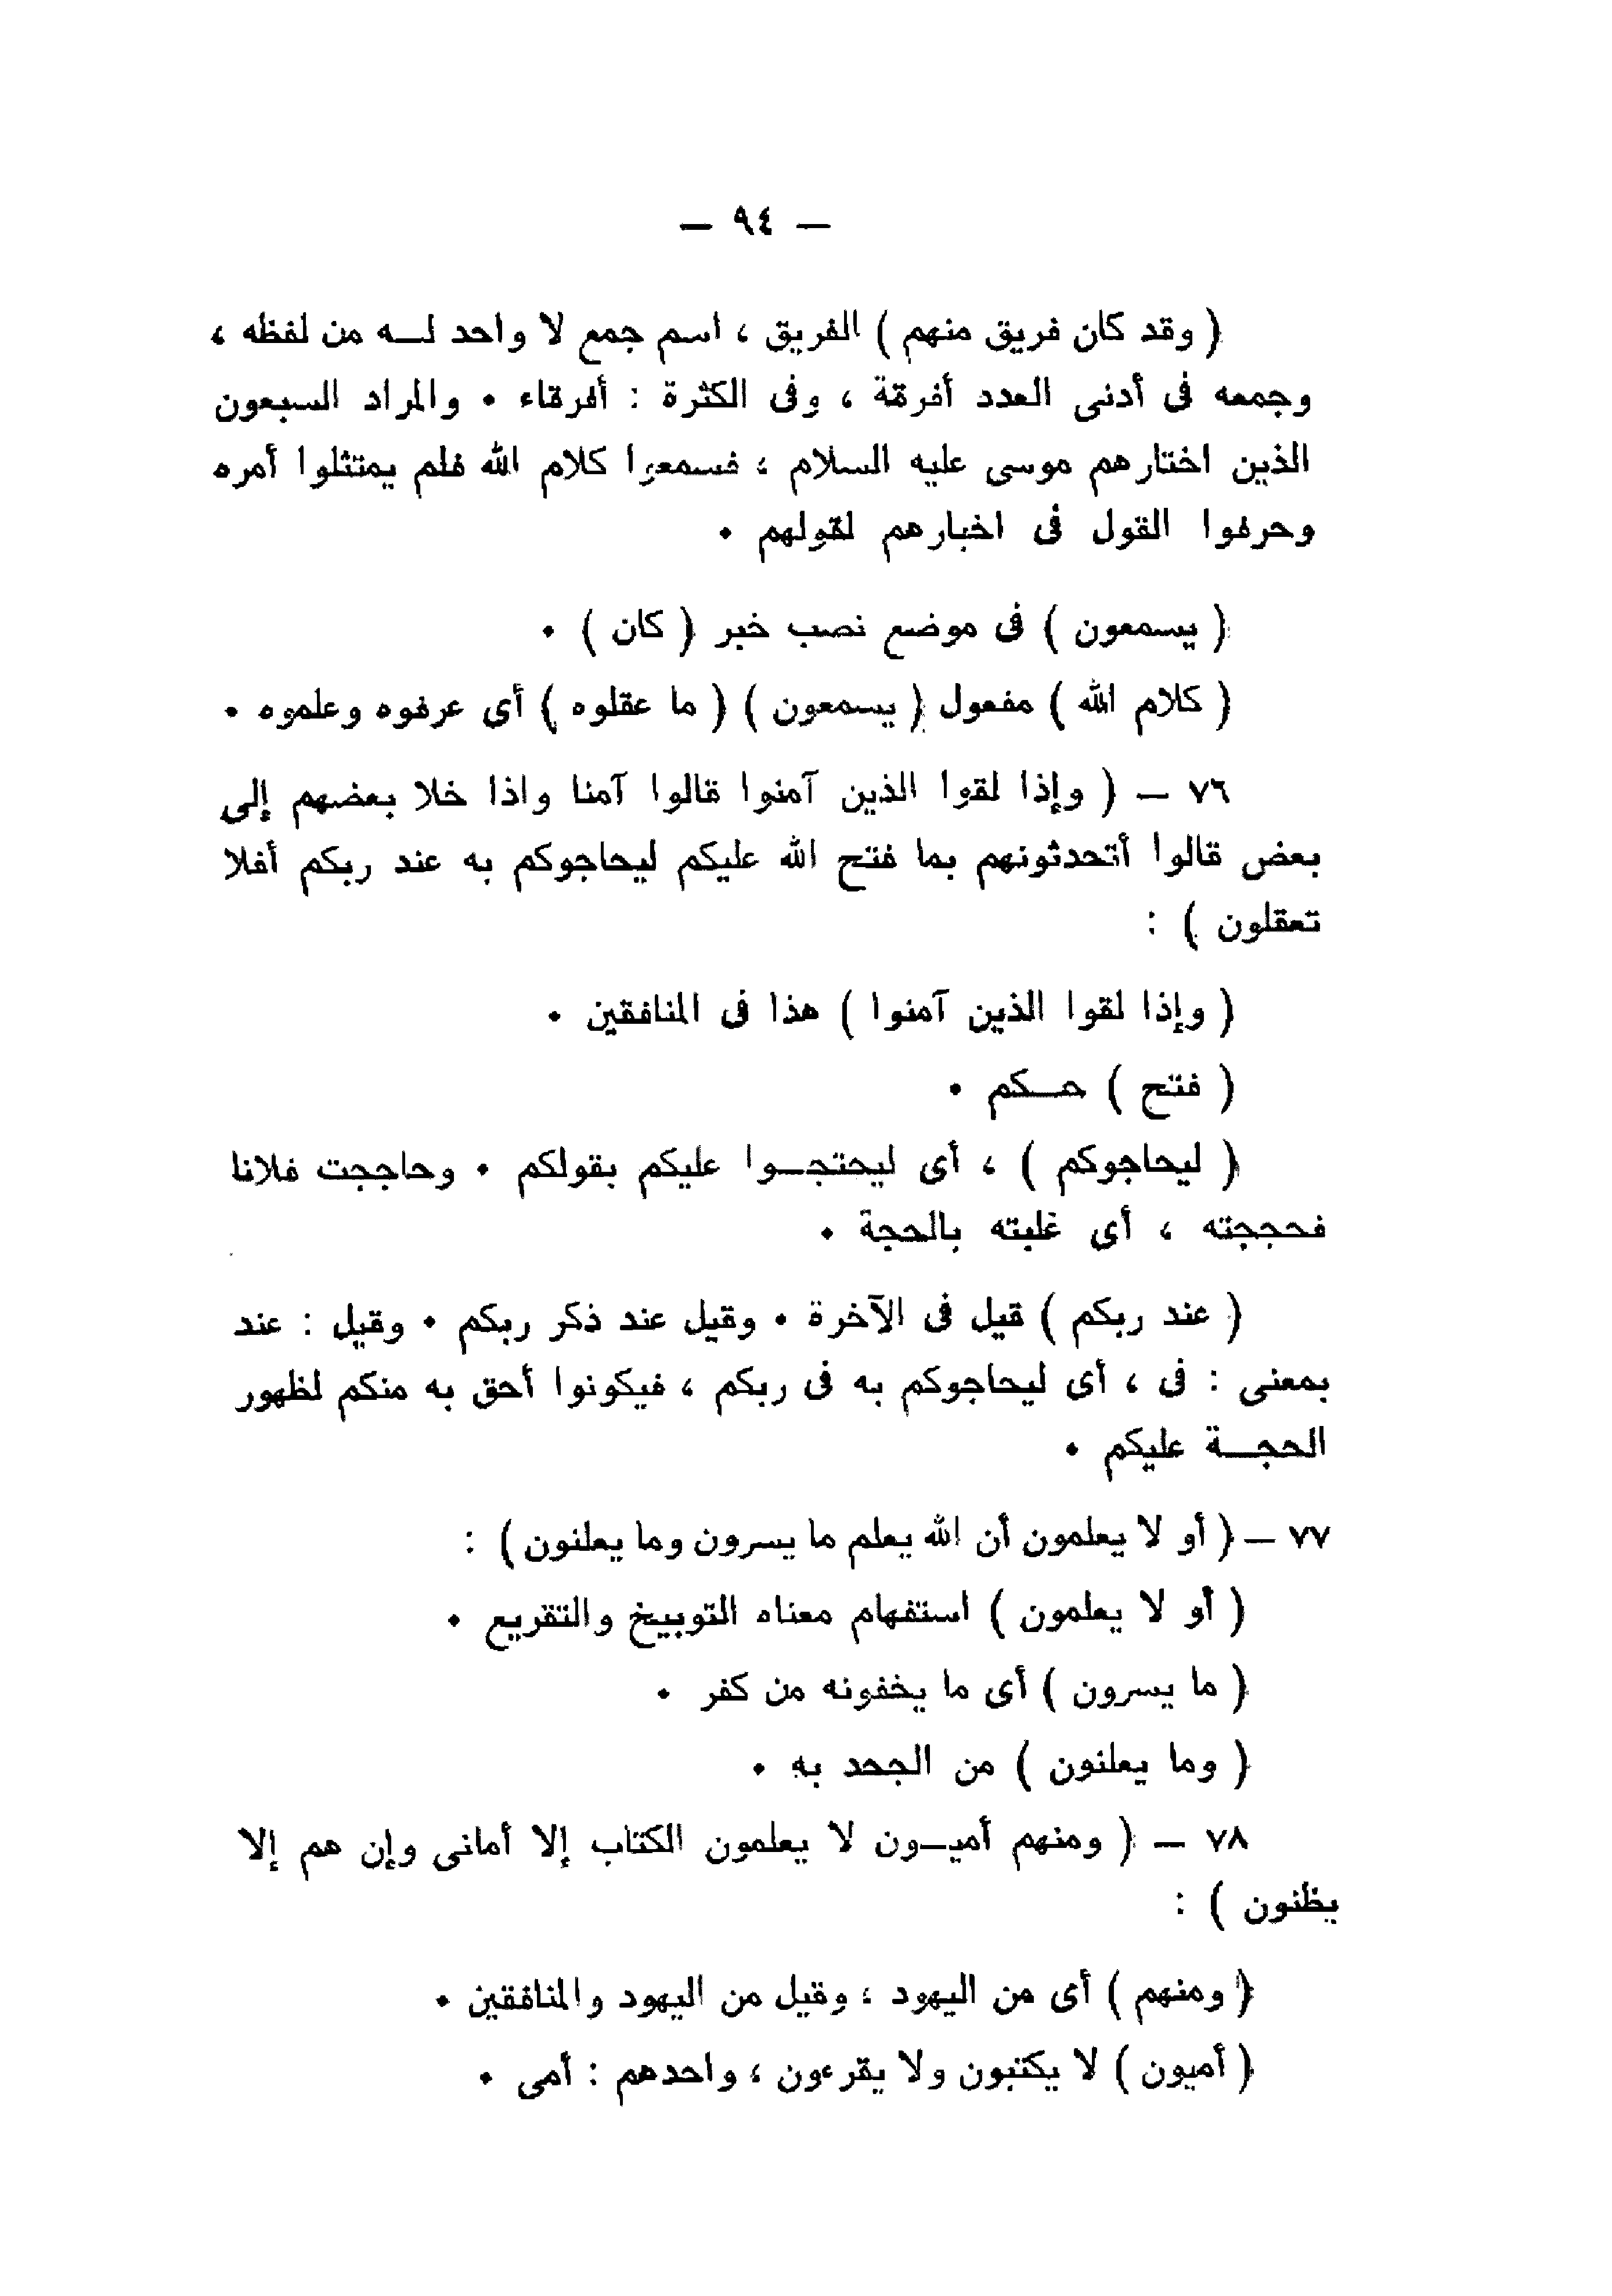 — ٩٤ —
( وقد كان فريق منهم ) الفريق ، اسم جمع لا واحد لــه من لفظه ،
وجمعه فى أدنى العدد أفرقة ، وفى الكثرة : أفرقاء . والمراد السبعون
الذين اختارهم موسى عليه السلام ، فسمعوا كلام الله فلم يمتثلوا أمره
وحرفوا القول فى اخبارهم لقولهم .
( يسمعون ) فى موضع نصب خبر ( كان ) .
( كلام الله ) مفعول ( يسمعون ) ( ما عقلوه ) أى عرفوه وعلموه .
٧٦ — ( وإذا لقوا الذين آمنوا قالوا آمنا واذا خلا بعضهم إلى
بعض قالوا أتحدثونهم بما فتح الله عليكم ليحاجوكم به عند ربكم أفلا
تعقلون ) :
( وإذا لقوا الذين آمنوا ) هذا فى المنافقين .
( فتح ) حــكم .
( ليحاجوكم ) ، أى ليحتجــوا عليكم بقولكم . وحاججت فلانا
فحججته ، أى غلبته بالحجة .
( عند ربكم ) قيل فى الآخرة . وقيل عند ذكر ربكم . وقيل : عند
بمعنى : فى ، أى ليحاجوكم به فى ربكم ، فيكونوا أحق به منكم لظهور
الحجــة عليكم .
٧٧ — ( أو لا يعلمون أن الله يعلم ما يسرون وما يعلنون ) :
( أو لا يعلمون ) استفهام معناه التوبيخ والتقريع .
( ما يسرون ) أى ما يخفونه من كفر .
( وما يعلنون ) من الجحد به .
٧٨ — ( ومنهم أميــون لا يعلمون الكتاب إلا أمانى وإن هم إلا
يظنون ) :
( ومنهم ) أى من اليهود ، وقيل من اليهود والمنافقين .
( أميون ) لا يكتبون ولا يقرءون ، واحدهم : أمى .